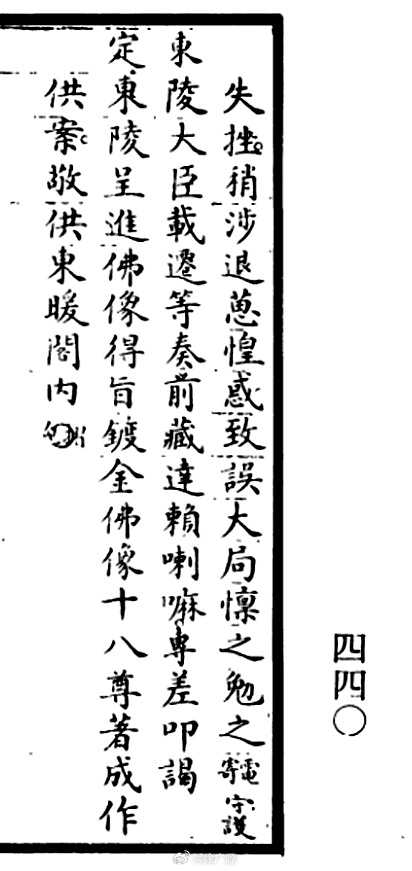 四四〇
失挫稍涉退葸惶惑致誤大局懍之勉之電寄守護
東陵大臣載遷等奏前藏達賴喇嘛專差叩謁
定東陵呈進佛像得旨鍍金佛像十八尊著成作
供案敬供東暖閣內